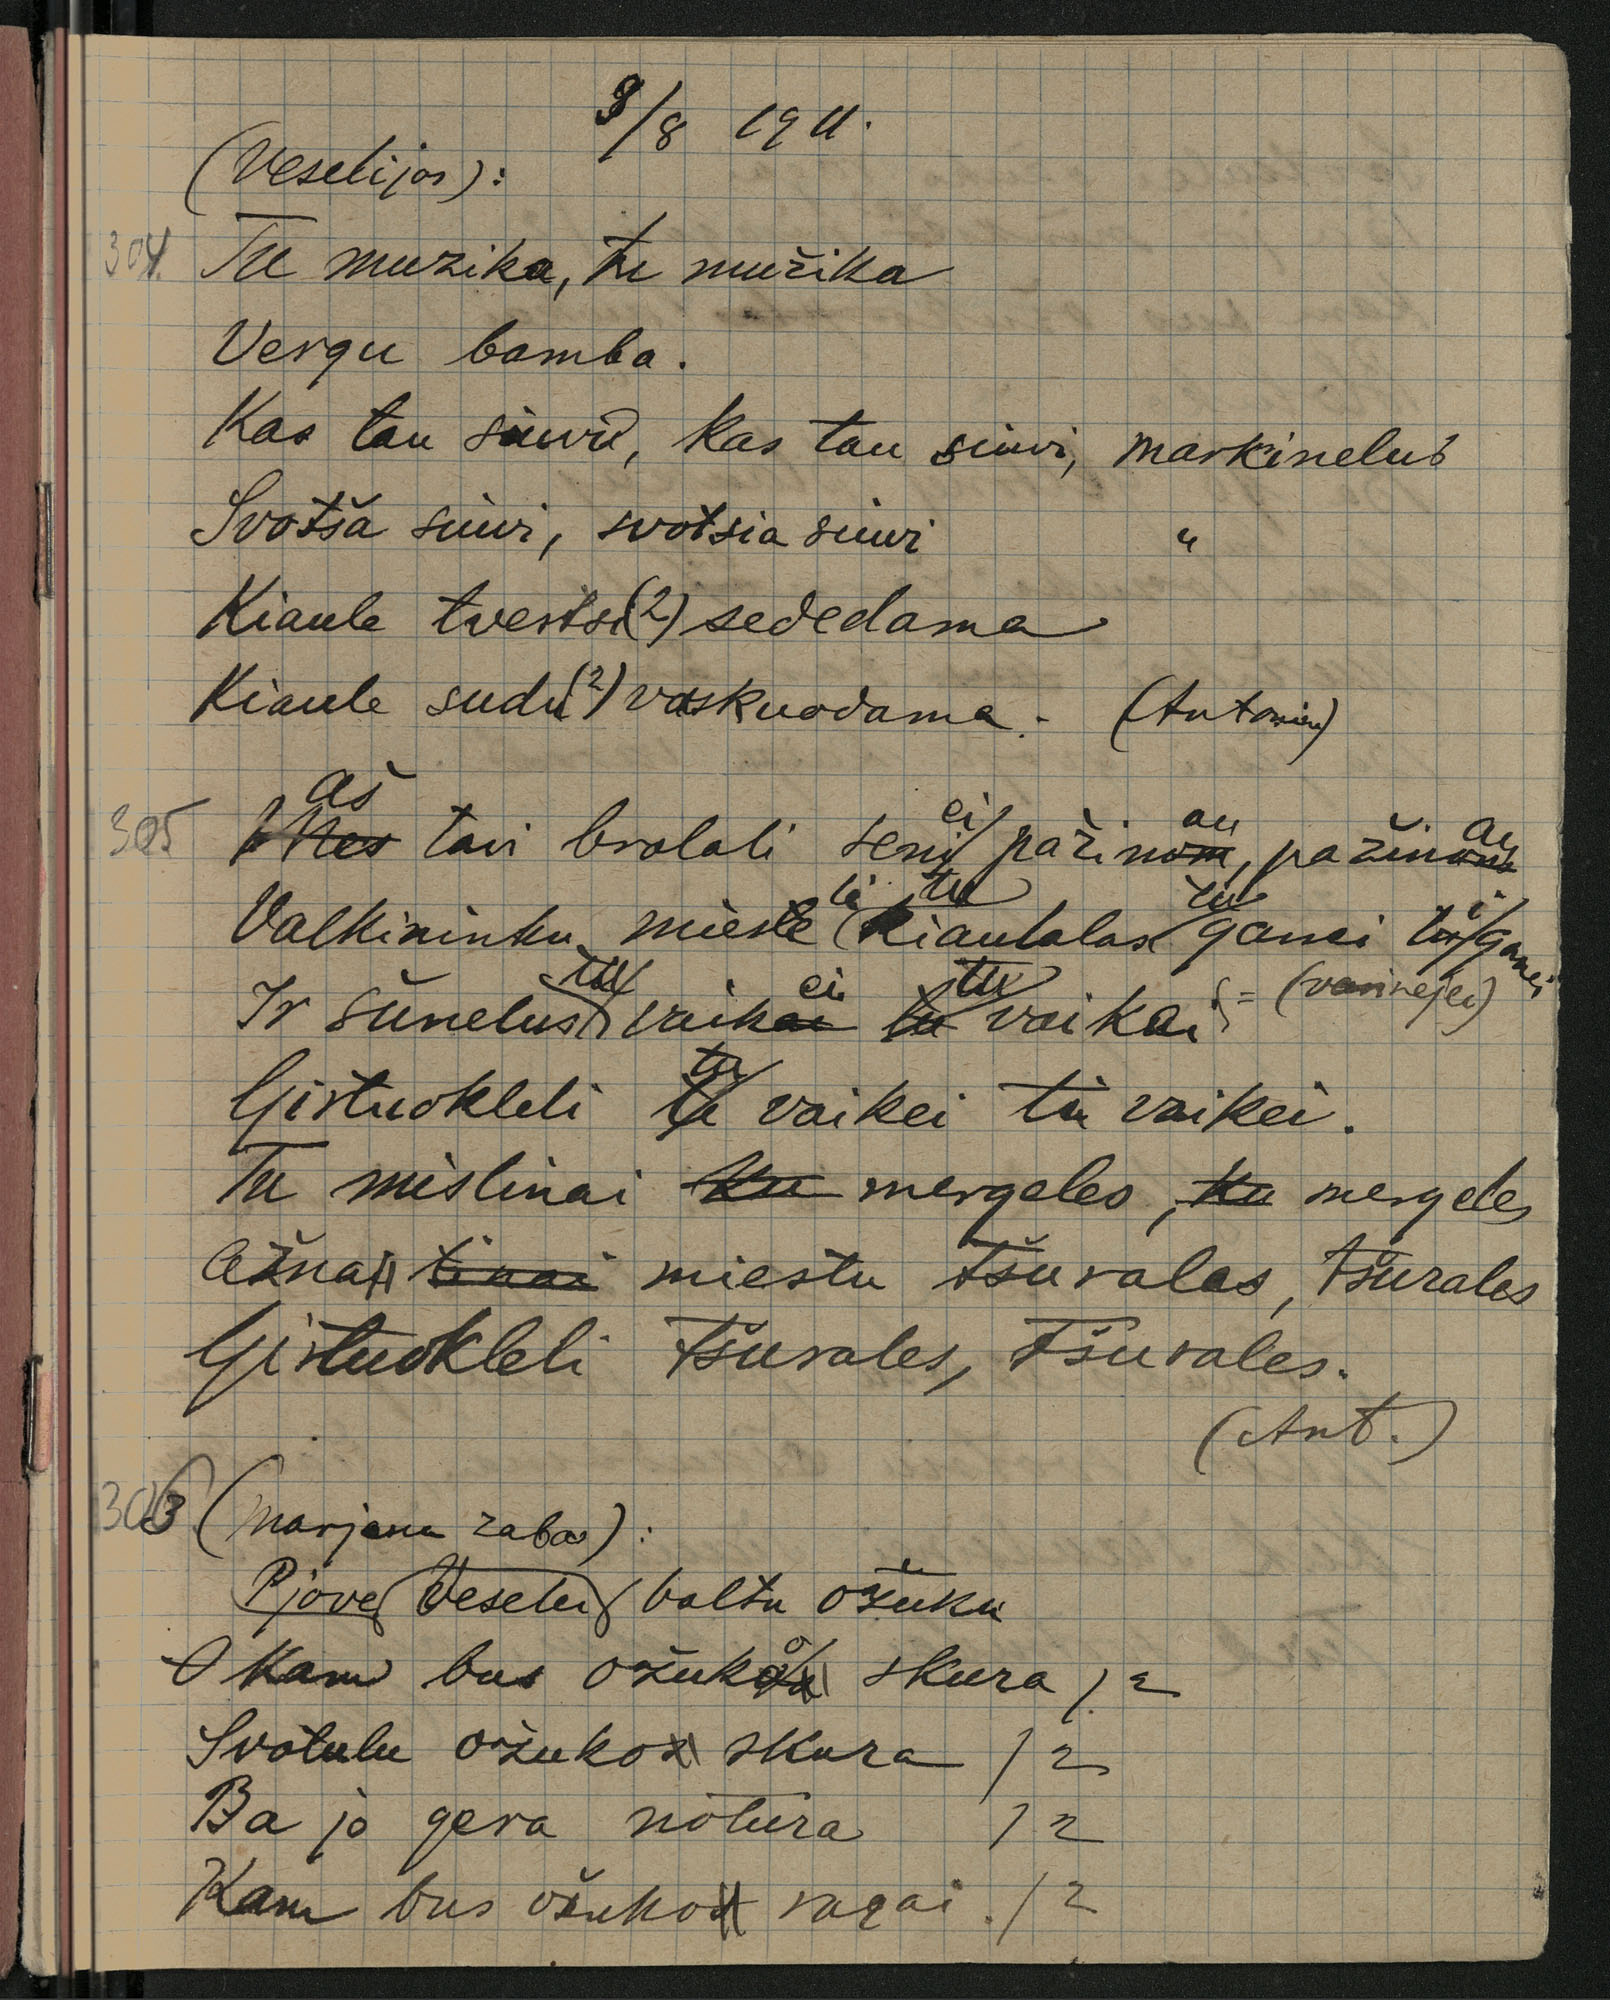 9/8 1911.
(Veselijos):
304. Tu muzika, tu mužika
Vergu bamba.
Kas tau siuvi, kas tau siuvi, markinelus
Svotša siuvi, svotsia siuvi "
Kiaule tvertsi (2) sededama
Kiaule sudu (2) vaskuodama. (Antonin)
305 aš tavi brolali senei pažinau, pažinau
Valkininku miesteli kiaulalas tu ganei tu ganei
Ir šunelus tu vaikei tu vaikai = (varinejei)
Girtuokleli tu vaikei tu vaikei.
Tu mislinai mergeles, mergeles
Ažnai miestu tšuralas, tšurales
Girtuokleli tšurales, tšurales.
(Ant.)
306 (Marjona zabos):
Pjove Veselei baltu ožuku
O Kam bus ožuko skura / 2
Svotulu ožuko skura / 2
Ba jo gera notura / 2
Kam bus ožuko ragai. / 2